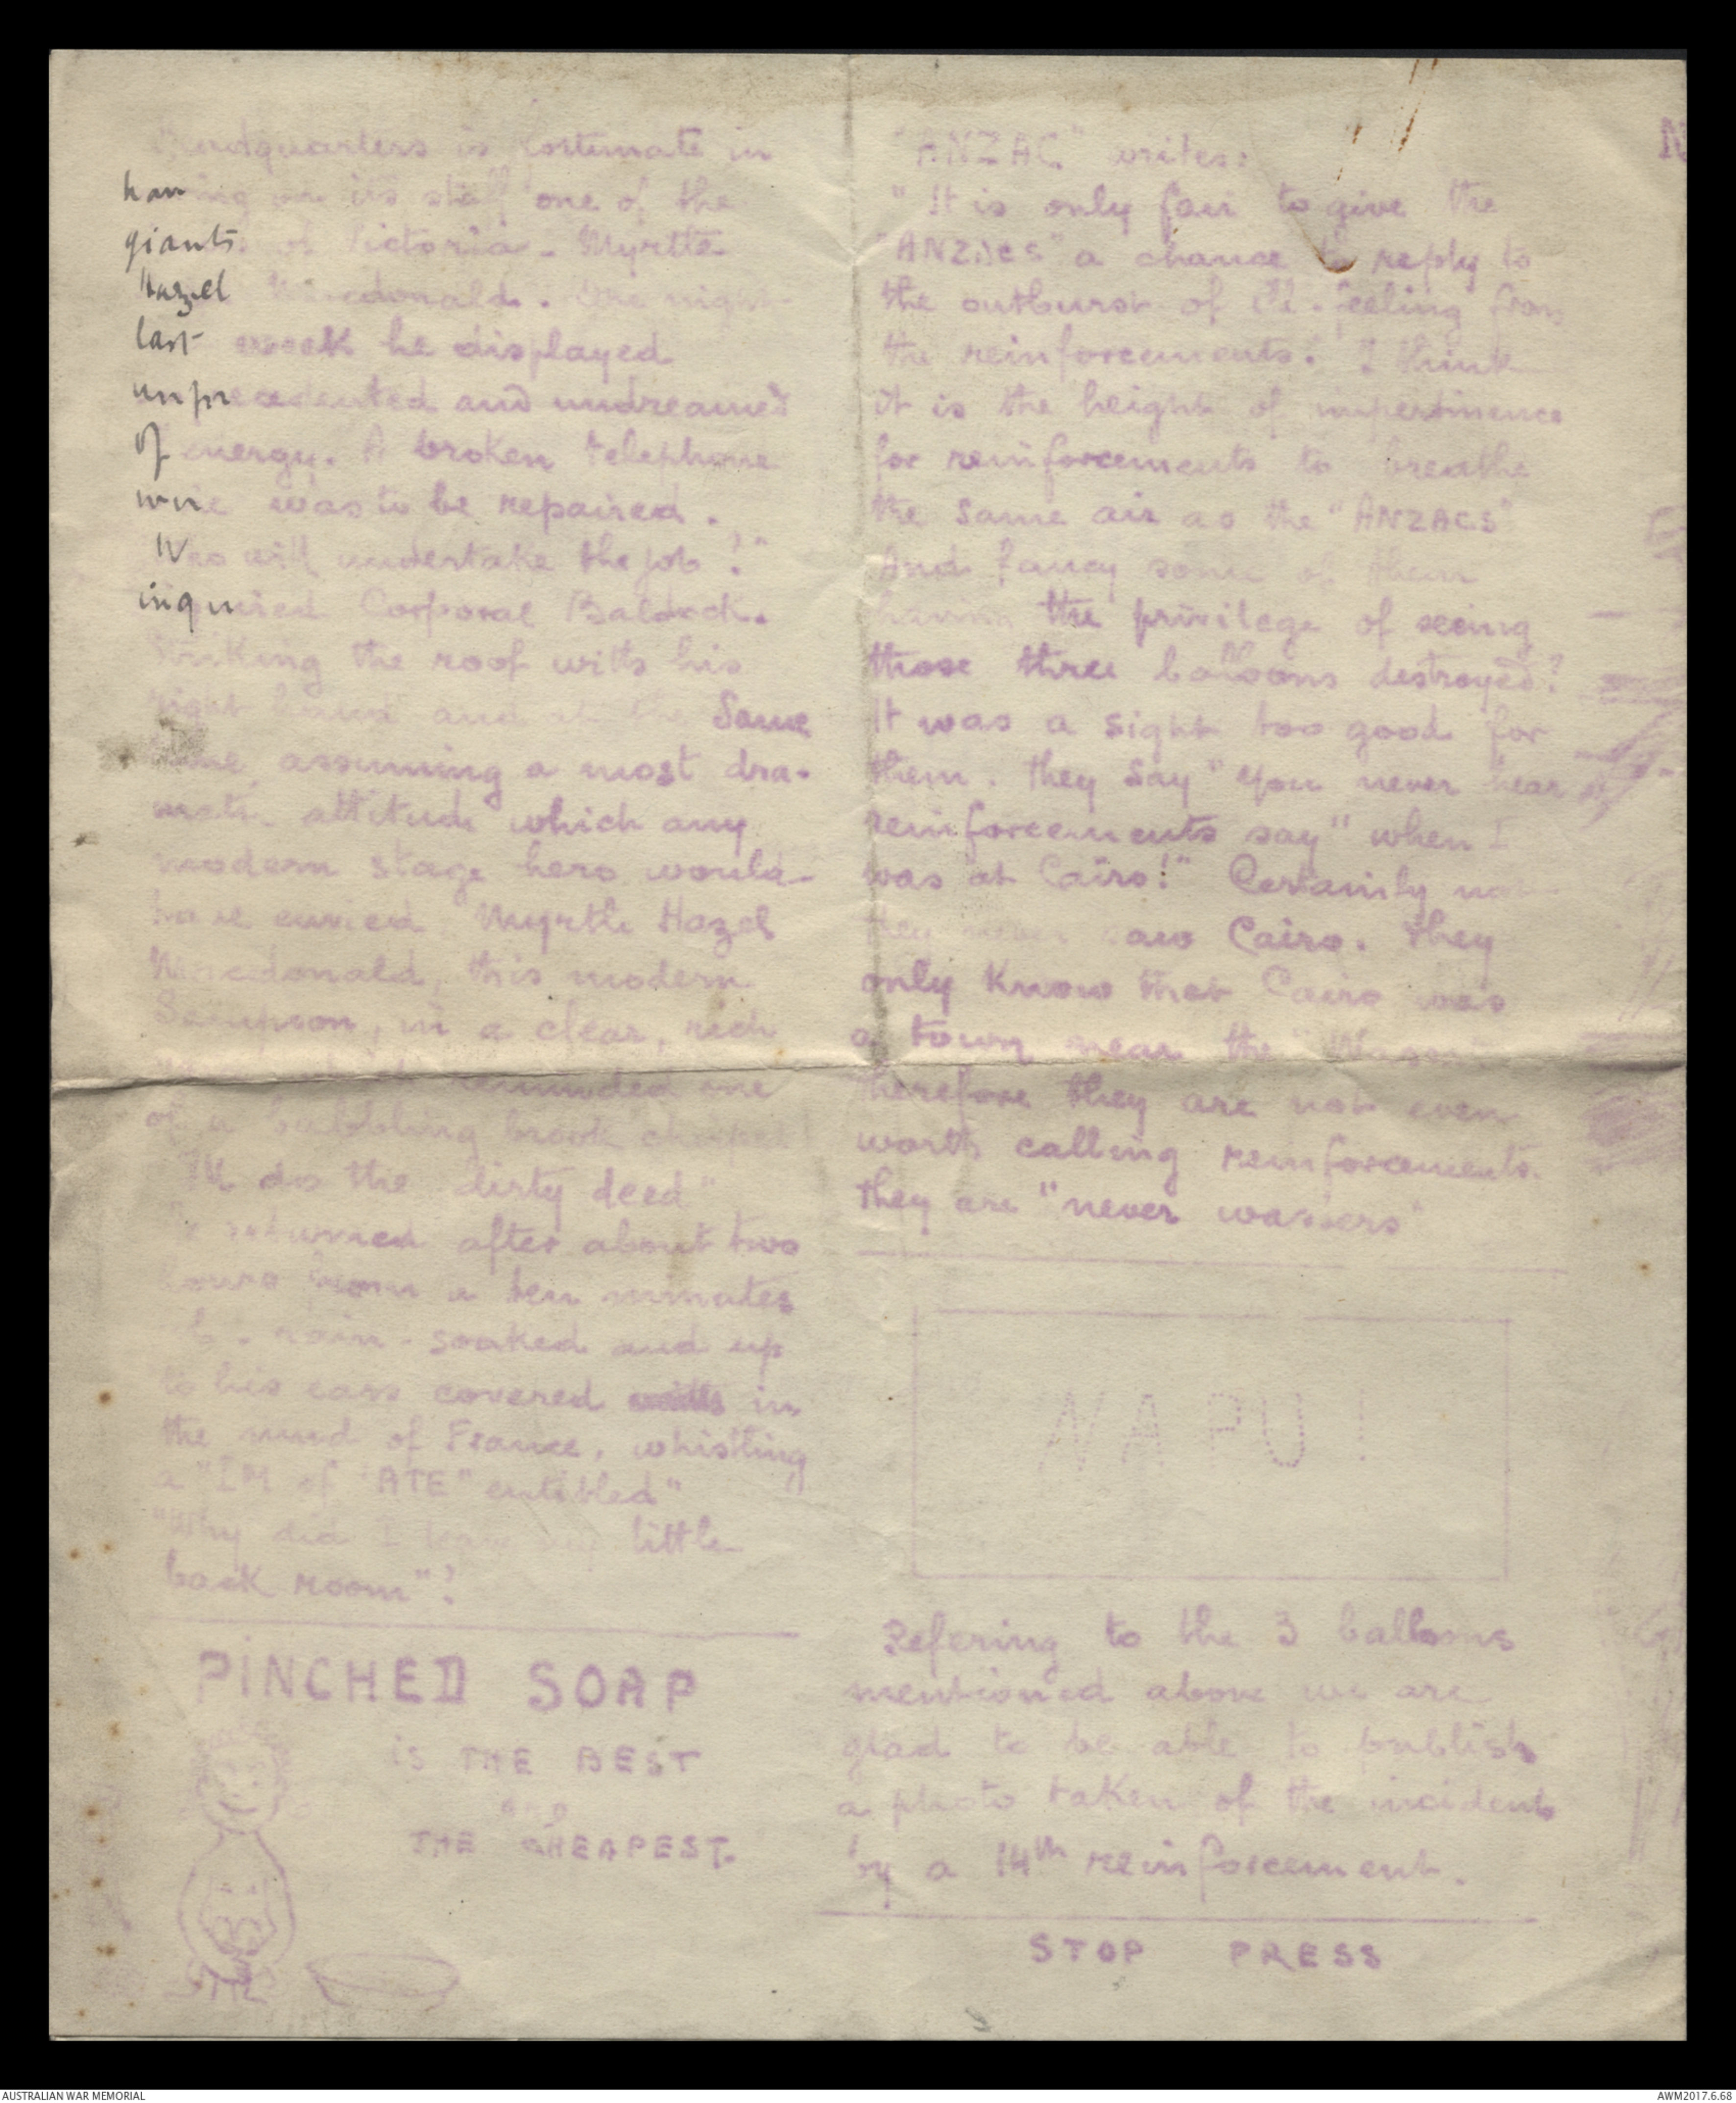 Headquarters is fortunate in
having on its staff one of the
giants of Victoria - Myrtle
Hazel Macdonald. One night
last week he displayed
unprecedented and undreamed
of energy. A broken telephone
wire was to be repaired.
"Who will undertake the job?"
inquired Corporal Baldock.
Striking the roof with his
right hand and at the same
time assuming a most dra-
matic attitude which any
modern stage hero would
have envied Myrtle Hazel
Macdonald, this modern
Sampson, in a clear, rich
reminded one
of a babbling brook
"I'll do the dirty deed"
He returned after about two
hours from a ten minutes
rain-soaked and up
to his ears covered in
the mud of France, whistling
a "IM of ATE" entitled"
"Why did I leave my little
back room"?
PINCHED SOAP
IS THE BEST
AND
THE CHEAPEST.
"ANZAC" writes:
"It is only fair to give the
"ANZACS" a chance to reply to
the outburst of ill-feeling from
the reinforcements. I think
it is the height of impertinence
for reinforcements to breathe
the same air as the "ANZACS"
And fancy some of them
having the privilege of seeing
those three balloons destroyed?
It was a sight too good for
them. They say "you never hear
reinforcements say" when I
was at Cairo!" Certainly not
they never saw Cairo. They
only know that Cairo was
a town near the
therefore they are not even
worth calling reinforcements.
they are "never wassers"
NAPU!
Refering to the 3 balloons
mentioned above we are
glad to be able to publish
a photo taken of the incident
by a 14th reinforcement.
STOP PRESS
N
AUSTRALIAN WAR MEMORIAL
AWM2017.6.68